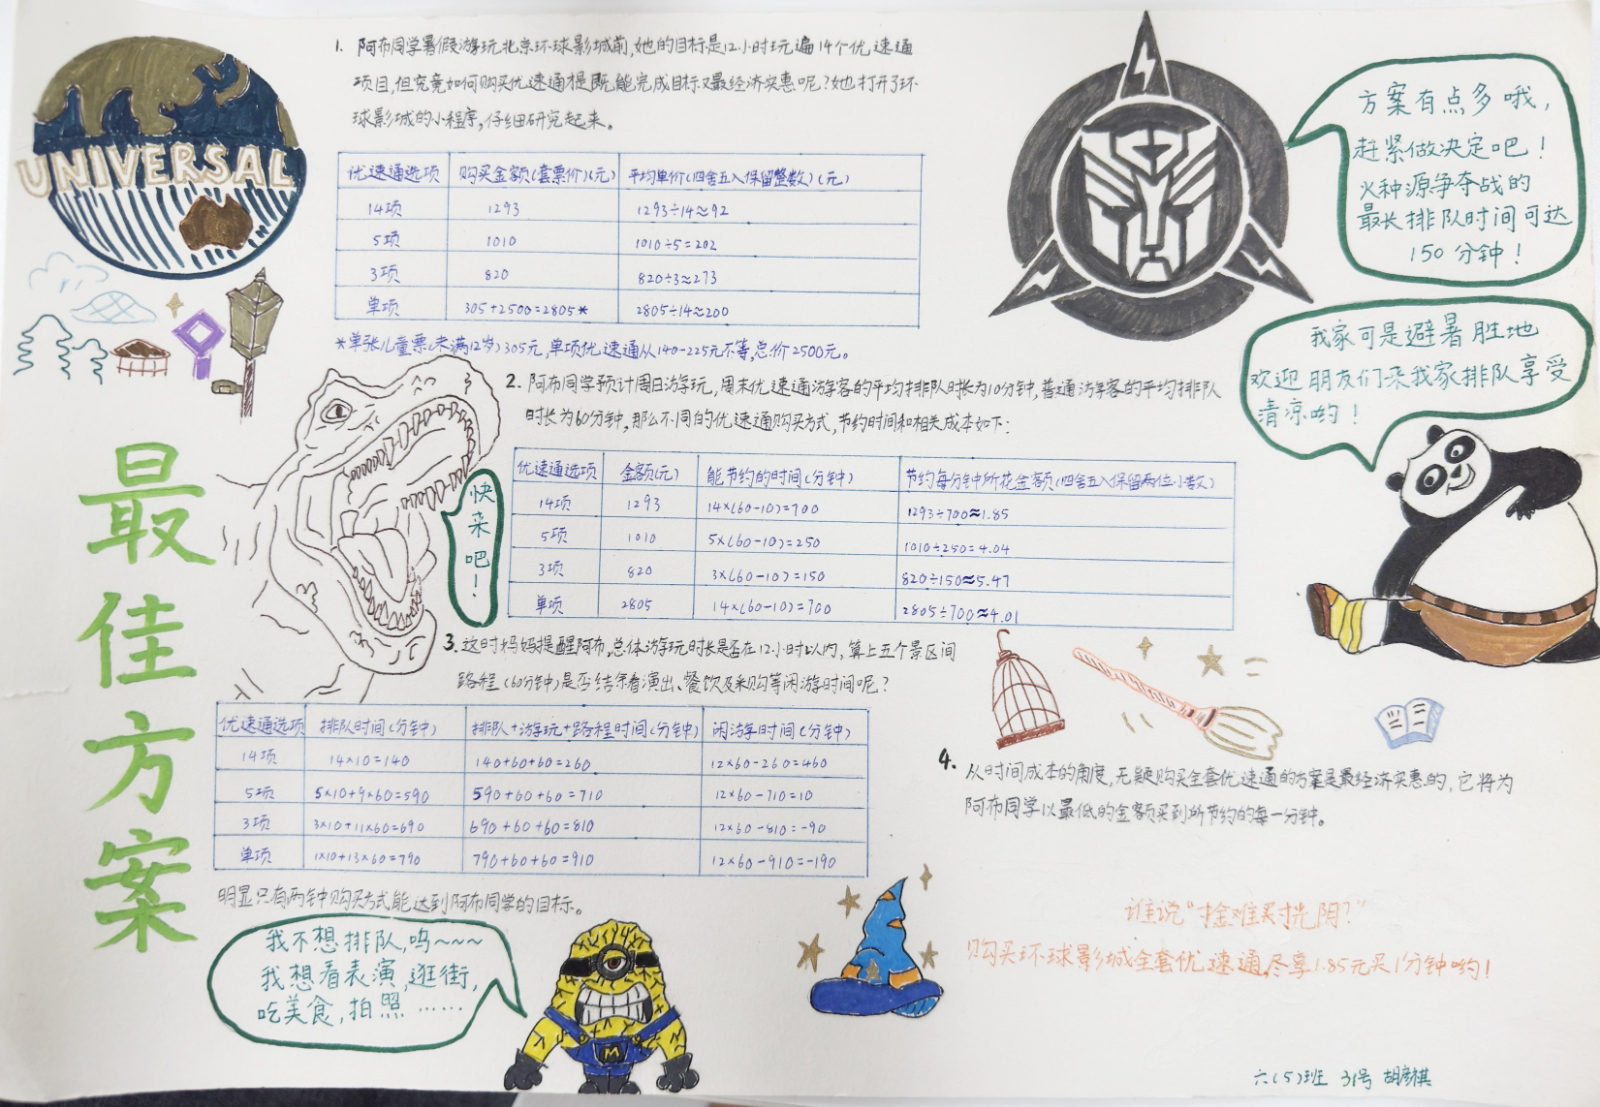 UNIVERSAL
最佳方案
1. 阿布同学暑假游玩北京环球影城前,她的目标是12小时玩遍14个优速通
项目,但究竟如何购买优速通是既能完成目标又最经济实惠呢?她打开了环
球影城的小程序,仔细研究起来。
优速通选项 购买金额(套票价)(元) 平均单价(四舍五入保留整数)(元)
14项 1293 1293÷14≈92
5项 1010 1010÷5=202
3项 820 820÷3≈273
单项 305+2500=2805* 2805÷14≈200
*单张儿童票(未满12岁)305元,单项优速通从140-225元不等,总价2500元。
方案有点多哦,
赶紧做决定吧!
火种源争夺战的
最长排队时间可达
150分钟!
我家可是避暑胜地
欢迎朋友们来我家排队享受
清凉哟!
2. 阿布同学预计周日游玩,周末优速通游客的平均排队时长为10分钟,普通游客的平均排队
时长为60分钟,那么不同的优速通购买方式,节约时间和相关成本如下:
优速通选项 金额(元) 能节约的时间(分钟) 节约每分钟所花金额(四舍五入保留两位小数)
14项 1293 14×(60-10)=700 1293÷700≈1.85
5项 1010 5×(60-10)=250 1010÷250=4.04
3项 820 3×(60-10)=150 820÷150≈5.47
单项 2805 14×(60-10)=700 2805÷700≈4.01
快来吧!
3. 这时妈妈提醒阿布,总体游玩时长是否在12小时以内,算上五个景区间
路程(60分钟)是否结余看演出、餐饮及采购等闲游时间呢?
优速通选项 排队时间(分钟) 排队+游玩+路程时间(分钟) 闲游时间(分钟)
14项 14×10=140 140+60+60=260 12×60-260=460
5项 5×10+9×60=590 590+60+60=710 12×60-710=10
3项 3×10+11×60=690 690+60+60=810 12×60-810=-90
单项 1×10+13×60=790 790+60+60=910 12×60-910=-190
明显只有两种购买方式能达到阿布同学的目标。
4. 从时间成本的角度,无疑购买全套优速通的方案是最经济实惠的,它将为
阿布同学以最低的金额买到所节约的每一分钟。
我不想排队,呜~~~
我想看表演,逛街,
吃美食,拍照……
M
谁说“寸金难买寸光阴?”
购买环球影城全套优速通,尽享1.85元买1分钟哟!
六(5)班 31号 胡彦祺